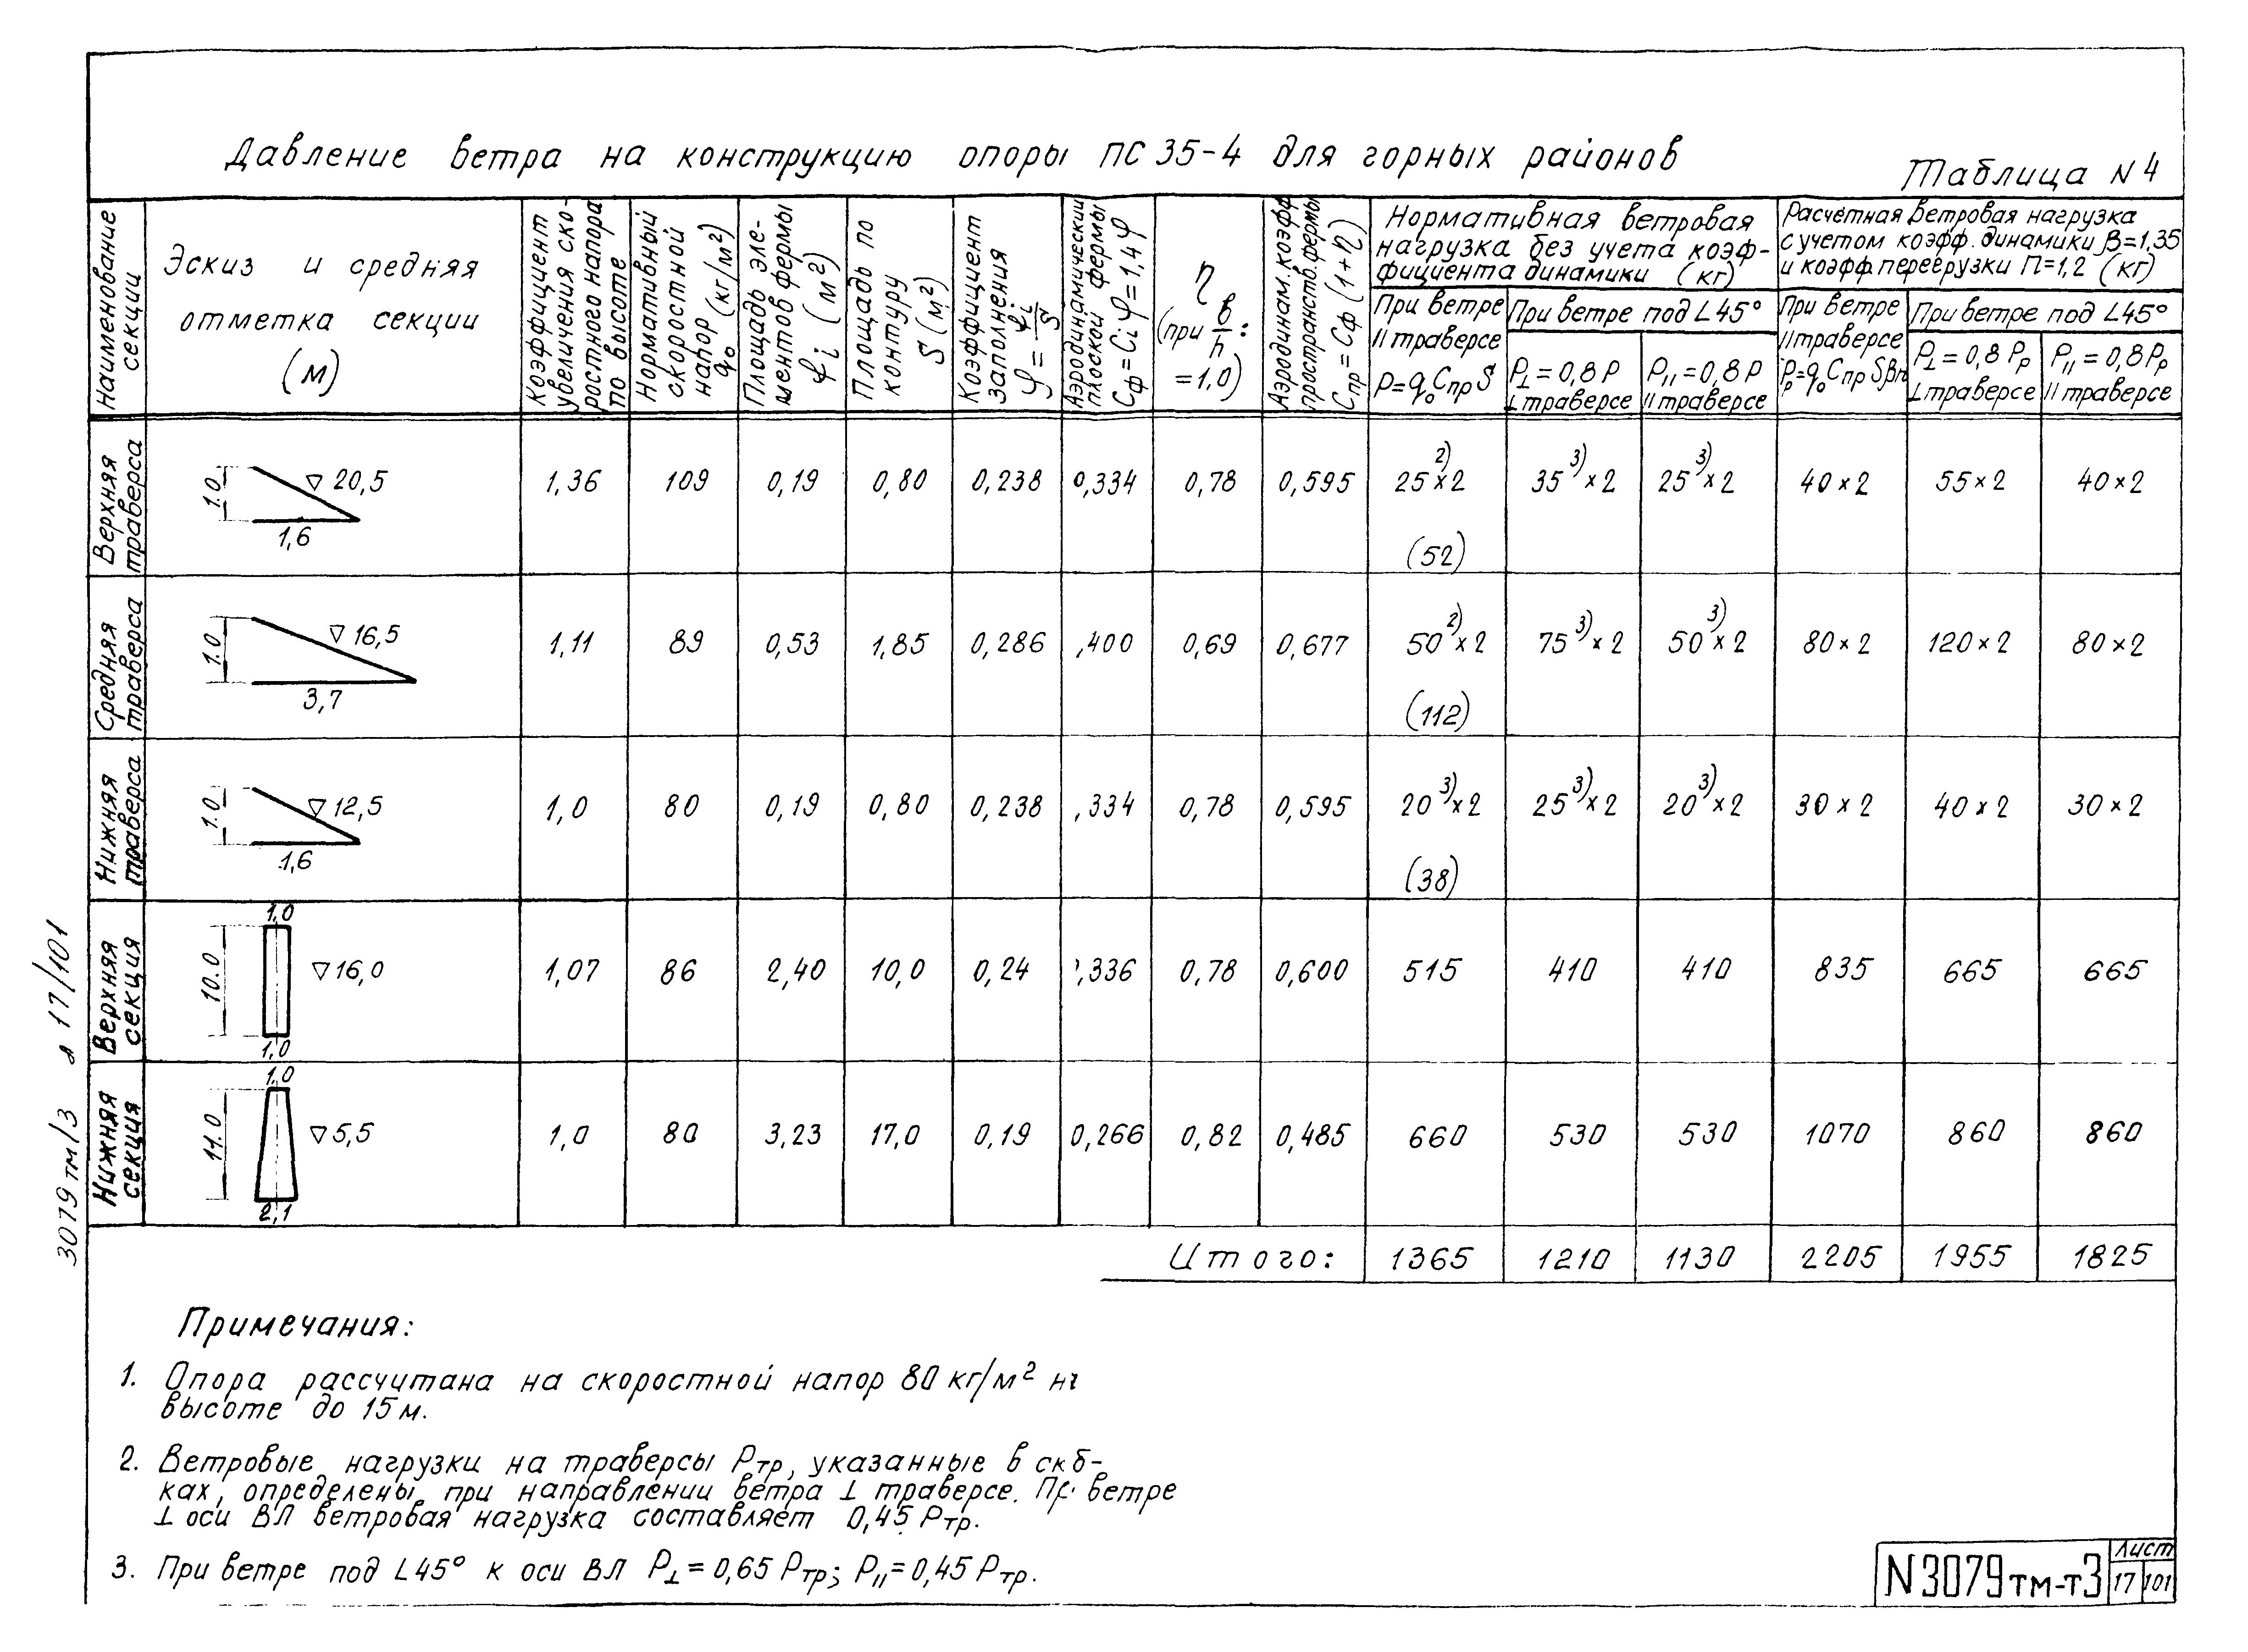 Давление ветра на конструкцию опоры ПС 35-4 для горных районов
Таблица N 4
Наименование секции
Эскиз и средняя отметка секции (м)
Коэффициент увеличения скоростного напора по высоте
Нормативный скоростной напор q₀ (кг/м²)
Площадь элементов фермы fi (м²)
Площадь по контуру S (м²)
Коэффициент заполнения φ = fi/S
Аэродинамический плоской фермы Cф = Ci φ = 1,4 φ
η (при в/h : = 1,0)
Аэродинам. коэфф. пространств. фермы Cпр = Cф (1+η)
Нормативная ветровая нагрузка без учета коэффициента динамики (кг)
При ветре // траверсе P=q₀CпрS
При ветре под L45°
P⊥=0,8 P ⊥ траверсе
P//=0,8 P // траверсе
Расчётная ветровая нагрузка с учетом коэфф. динамики β=1,35 и коэфф. перегрузки n=1,2 (кг)
При ветре // траверсе Pр=q₀Cпр Sβn
При ветре под L45°
P⊥=0,8 Pр ⊥ траверсе
P//=0,8 Pр // траверсе
Верхняя траверса
1.0 ▽ 20,5 1,6
1,36 109 0,19 0,80 0,238 0,334 0,78 0,595 25²⁾×2 35³⁾×2 25³⁾×2 40×2 55×2 40×2
(52)
Средняя траверса
1.0 ▽ 16,5 3,7
1,11 89 0,53 1,85 0,286 ,400 0,69 0,677 50²⁾×2 75³⁾×2 50³⁾×2 80×2 120×2 80×2
(112)
Нижняя траверса
1.0 ▽ 12,5 1,6
1,0 80 0,19 0,80 0,238 ,334 0,78 0,595 20³⁾×2 25³⁾×2 20³⁾×2 30×2 40×2 30×2
(38)
Верхняя секция
1,0 10.0 ▽ 16,0 1,0
1,07 86 2,40 10,0 0,24 ,336 0,78 0,600 515 410 410 835 665 665
Нижняя секция
1,0 11.0 ▽ 5,5 2,1
1,0 80 3,23 17,0 0,19 0,266 0,82 0,485 660 530 530 1070 860 860
Итого: 1365 1210 1130 2205 1955 1825
Примечания:
1. Опора рассчитана на скоростной напор 80 кг/м² на
высоте до 15 м.
2. Ветровые нагрузки на траверсы Pтр, указанные в скб-
ках, определены при направлении ветра ⊥ траверсе. При ветре
⊥ оси ВЛ ветровая нагрузка составляет 0,45 Pтр.
3. При ветре под L45° к оси ВЛ P⊥=0,65 Pтр; P//=0,45 Pтр.
3079тм/3 л 17/101
N3079тм-т3
Лист
17 101